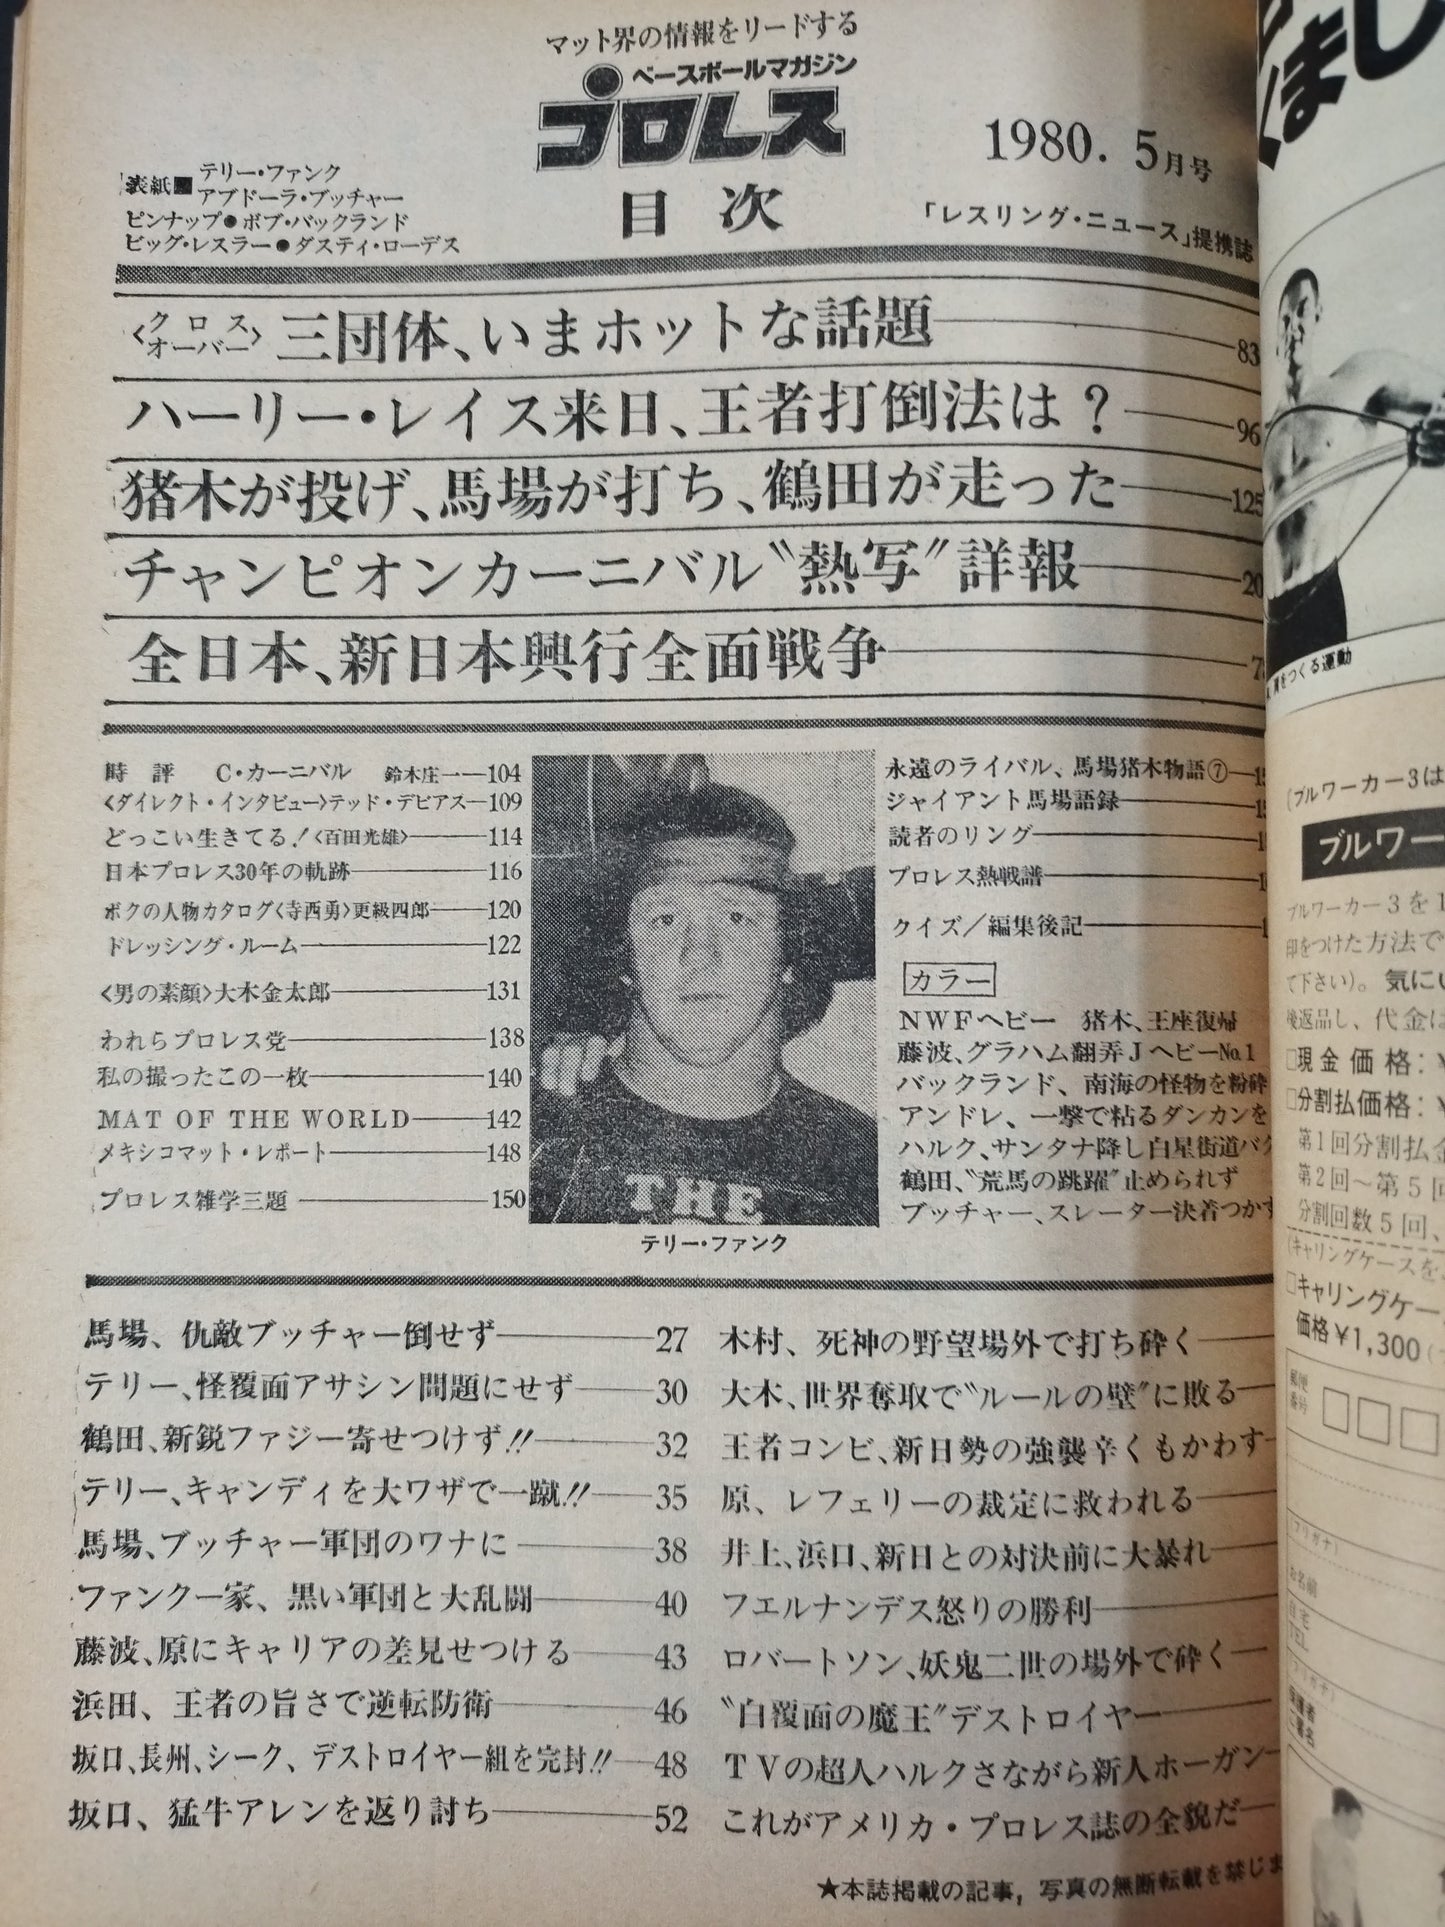 マット界の情報をリードする
ベースボールマガジン
プロレス
1980. 5月号
目次
「レスリング・ニュース」提携誌
表紙■テリー・ファンク
アブドーラ・ブッチャー
ピンナップ●ボブ・バックランド
ビッグ・レスラー●ダスティ・ローデス
〈クロスオーバー〉三団体、いまホットな話題 83
ハーリー・レイス来日、王者打倒法は？ 96
猪木が投げ、馬場が打ち、鶴田が走った 125
チャンピオンカーニバル〝熱写〟詳報 20
全日本、新日本興行全面戦争
時評 C・カーニバル 鈴木庄一 104
〈ダイレクト・インタビュー〉テッド・デビアス 109
どっこい生きてる！〈百田光雄〉 114
日本プロレス30年の軌跡 116
ボクの人物カタログ〈寺西勇〉更級四郎 120
ドレッシング・ルーム 122
〈男の素顔〉大木金太郎 131
われらプロレス党 138
私の撮ったこの一枚 140
MAT OF THE WORLD 142
メキシコマット・レポート 148
プロレス雑学三題 150
THE
テリー・ファンク
永遠のライバル、馬場猪木物語⑦
ジャイアント馬場語録
読者のリング
プロレス熱戦譜
クイズ／編集後記
カラー
NWFヘビー 猪木、王座復帰
藤波、グラハム翻弄JヘビーNo.1
バックランド、南海の怪物を粉砕
アンドレ、一撃で粘るダンカンを
ハルク、サンタナ降し白星街道バク
鶴田、〝荒馬の跳躍〟止められず
ブッチャー、スレーター決着つかず
馬場、仇敵ブッチャー倒せず 27
テリー、怪覆面アサシン問題にせず 30
鶴田、新鋭ファジー寄せつけず!! 32
テリー、キャンディを大ワザで一蹴!! 35
馬場、ブッチャー軍団のワナに 38
ファンク一家、黒い軍団と大乱闘 40
藤波、原にキャリアの差見せつける 43
浜田、王者の旨さで逆転防衛 46
坂口、長州、シーク、デストロイヤー組を完封!! 48
坂口、猛牛アレンを返り討ち 52
木村、死神の野望場外で打ち砕く
大木、世界奪取で〝ルールの壁〟に敗る
王者コンビ、新日勢の強襲辛くもかわす
原、レフェリーの裁定に救われる
井上、浜口、新日との対決前に大暴れ
フエルナンデス怒りの勝利
ロバートソン、妖鬼二世の場外で砕く
〝白覆面の魔王〟デストロイヤー
TVの超人ハルクさながら新人ホーガン
これがアメリカ・プロレス誌の全貌だ
★本誌掲載の記事，写真の無断転載を禁じま
くまし
をつくる運動
(ブルワーカー3は
ブルワー
ブルワーカー3を1
印をつけた方法で
て下さい)。気にい
返品し、代金は
□現金価格：¥
□分割払価格：¥
第1回分割払金
第2回〜第5回
分割回数5回、
(キャリングケースを
□キャリングケー
価格¥1,300
郵便番号
(フリガナ)
お名前
自宅TEL
(フリガナ)
保護者ご署名